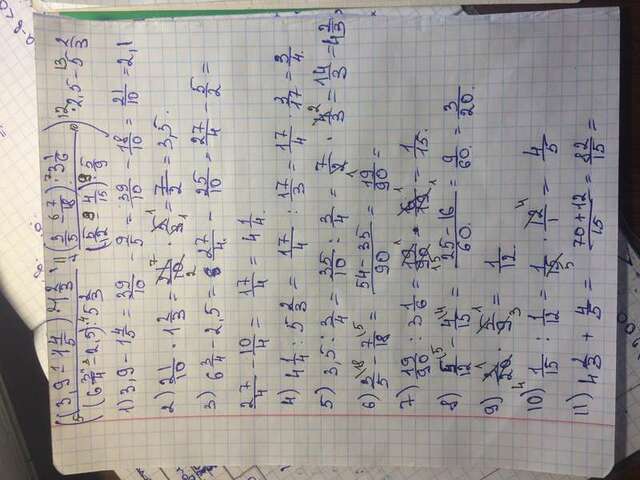 ((3,9 - 1 4/5) · 1 2/3 / (6 3/4 - 2,5) : 5 2/3 + (3/5 - 7/18) : 3 1/6 / (5/12 - 4/15) · 5/9) · 2,5 - 5 2/3
1) 3,9 - 1 4/5 = 39/10 - 9/5 = 39/10 - 18/10 = 21/10 = 2,1
2) 21/10 · 1 2/3 = 21/10 · 5/3 = 7/2 = 3,5.
3) 6 3/4 - 2,5 = 27/4 - 25/10 = 27/4 - 5/2 =
27/4 - 10/4 = 17/4 = 4 1/4.
4) 4 1/4 : 5 2/3 = 17/4 : 17/3 = 17/4 · 3/17 = 3/4
5) 3,5 : 3/4 = 35/10 : 3/4 = 7/2 · 4/3 = 14/3 = 4 2/3,
6) 3/5 - 7/18 = 54-35/90 = 19/90 =
7) 19/90 : 3 1/6 = 19/90 · 6/19 = 1/15.
8) 5/12 - 4/15 = 25-16/60. = 9/60. = 3/20.
9) 3/20 · 5/9 = 1/12.
10) 1/15 : 1/12 = 1/15 · 12/1 = 4/5
11) 4 2/3 + 4/5 = 70+12/15 = 82/15 =